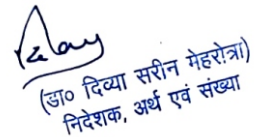 (डा० दिव्या सरीन मेहरोत्रा)
निदेशक, अर्थ एवं संख्या